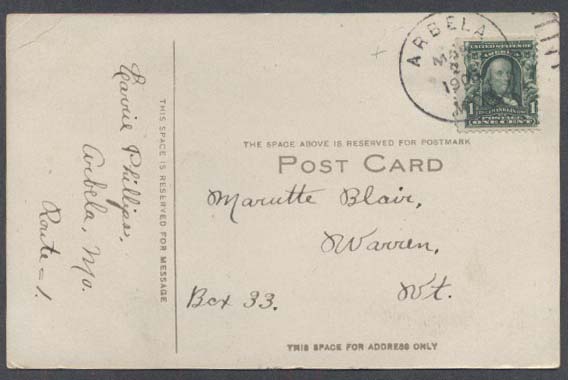 ARBELA
THE SPACE ABOVE IS RESERVED FOR POSTMARK
POST CARD
Marutte Blair,
Warren,
Box 33.
Vt.
THIS SPACE FOR ADDRESS ONLY
THIS SPACE IS RESERVED FOR MESSAGE
Carrie Phillips,
Arbela, Mo.
Route = 1.
UNITED STATES OF AMERICA
1 1
POSTAGE
ONE CENT